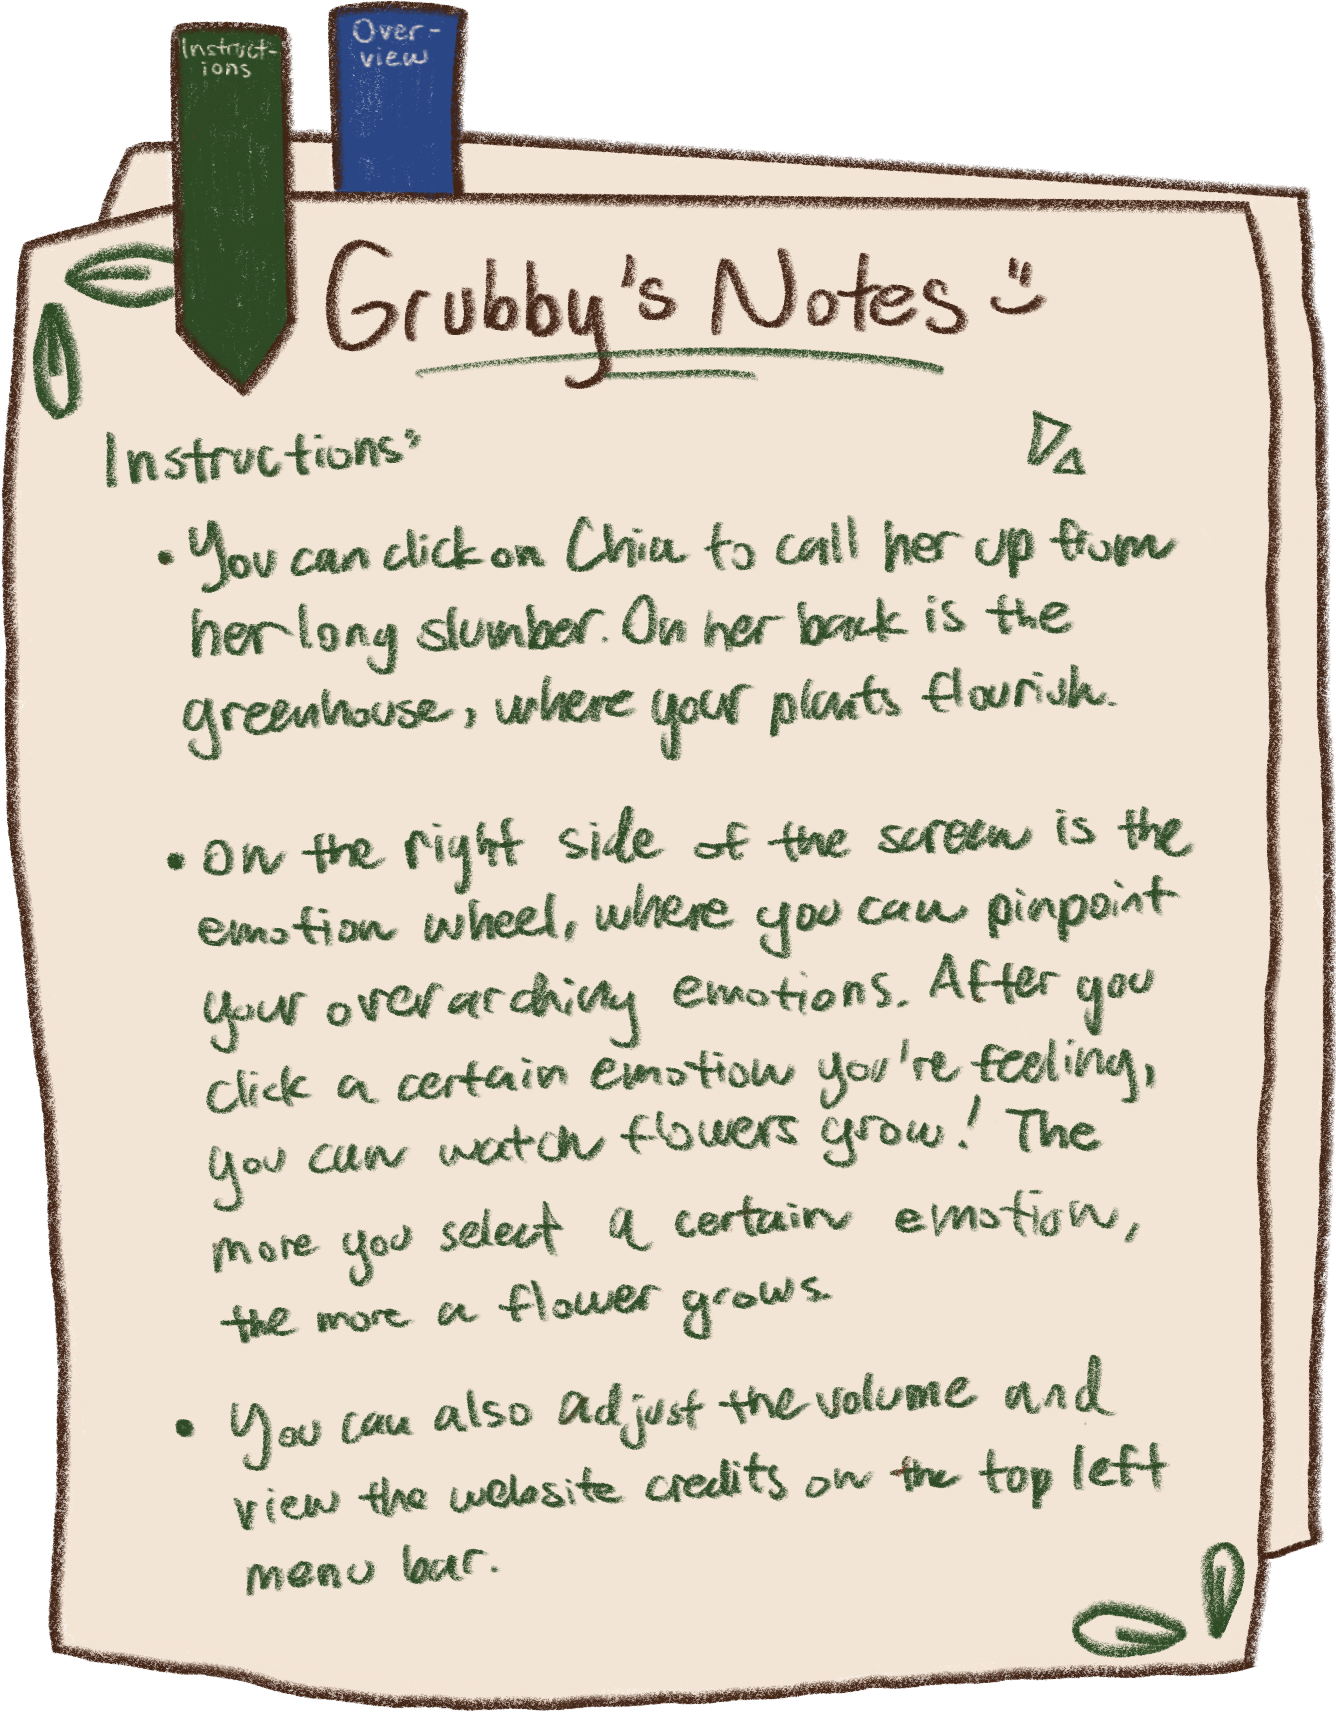 Instruct-
ions
Over-
view
Grubby's Notes
Instructions:
• You can click on Chia to call her up from
her long slumber. On her back is the
greenhouse, where your plants flourish.
• On the right side of the screen is the
emotion wheel, where you can pinpoint
your overarching emotions. After you
click a certain emotion you're feeling,
you can watch flowers grow! The
more you select a certain emotion,
the more a flower grows.
• You can also adjust the volume and
view the website credits on the top left
menu bar.